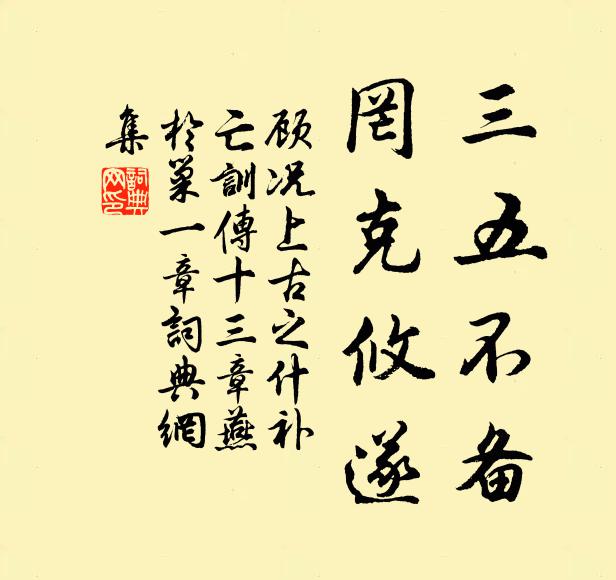 三五不备
罔克攸遂
顾况上古之什补
亡訓傳十三章燕
於巢一章詞典網
集
詞典網印